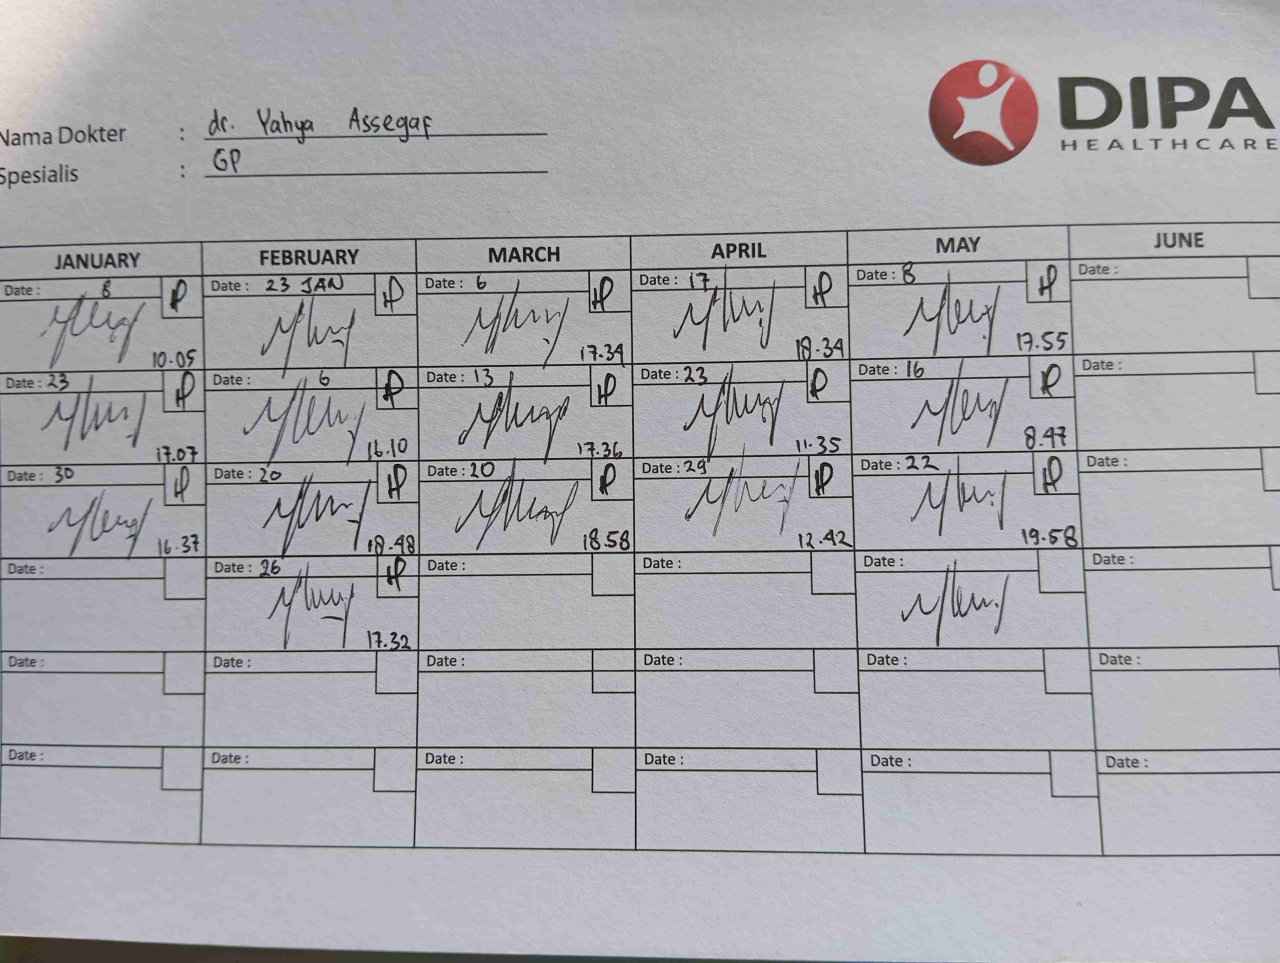 DIPA
HEALTHCARE
Nama Dokter : dr. Yahya Assegaf
Spesialis : GP
JANUARY FEBRUARY MARCH APRIL MAY JUNE
Date : 8 Date : 23 JAN Date : 6 Date : 17 Date : 8 Date :
10.05 17.34 18.34 17.55
Date : 23 Date : 6 Date : 13 Date : 23 Date : 16 Date :
17.07 16.10 17.36 11.35 8.47
Date : 30 Date : 20 Date : 20 Date : 29 Date : 22 Date :
16.37 18.48 18.58 12.42 19.58
Date : Date : 26 Date : Date : Date : Date :
17.32
Date : Date : Date : Date : Date : Date :
Date : Date : Date : Date : Date : Date :